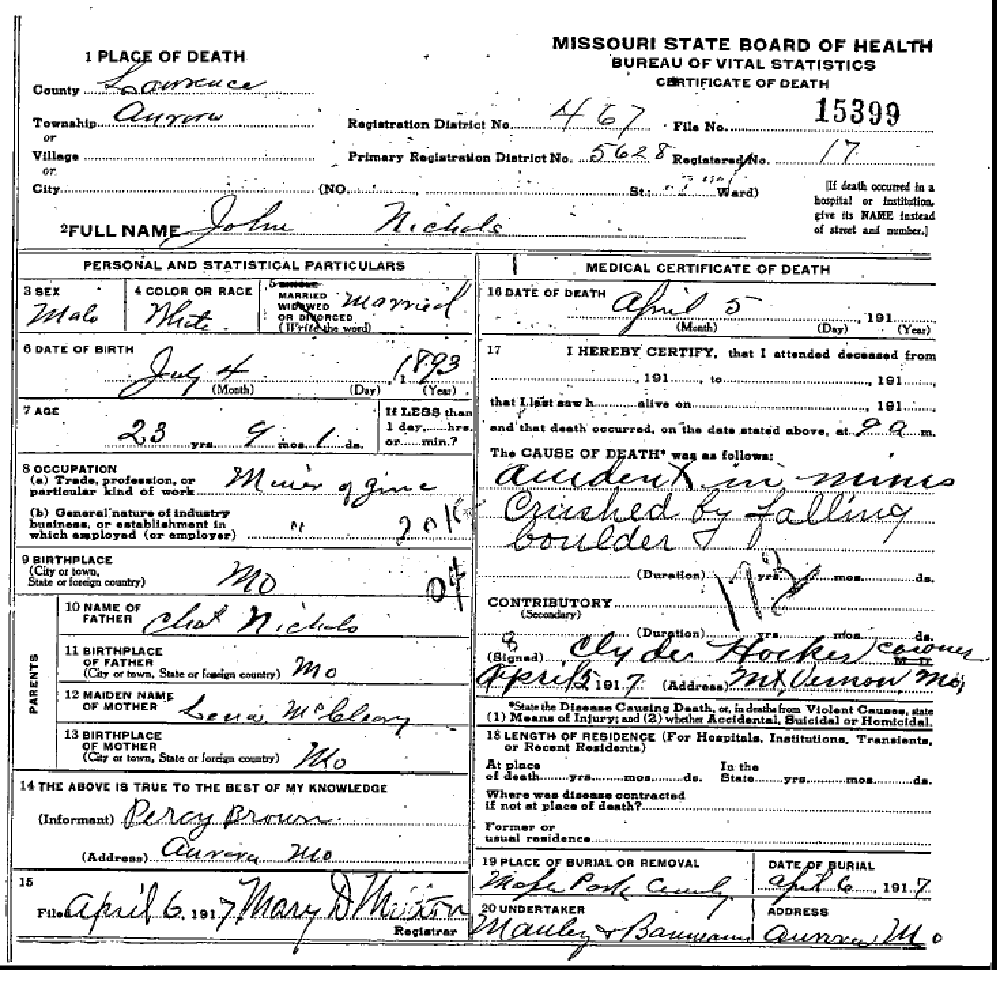 MISSOURI STATE BOARD OF HEALTH
BUREAU OF VITAL STATISTICS
CERTIFICATE OF DEATH
1 PLACE OF DEATH
County Lawrence
Township Aurora
or
Village
or
City (NO. St: Ward)
Registration District No. 467 File No. 15399
Primary Registration District No. 5628 Registered No. 17
[If death occurred in a
hospital or institution,
give its NAME instead
of street and number.]
2 FULL NAME John Nichols
PERSONAL AND STATISTICAL PARTICULARS
3 SEX
Male
4 COLOR OR RACE
White
5
MARRIED
WIDOWED
OR DIVORCED
(Write the word)
Married
6 DATE OF BIRTH
July 4 1893
(Month) (Day) (Year)
7 AGE
23 yrs. 9 mos. 1 ds.
If LESS than
1 day, hrs.
or min.?
8 OCCUPATION
(a) Trade, profession, or
particular kind of work Miner of Zinc
(b) General nature of industry
business, or establishment in
which employed (or employer) "
9 BIRTHPLACE
(City or town,
State or foreign country) Mo
04
PARENTS
10 NAME OF
FATHER Nichols
11 BIRTHPLACE
OF FATHER
(City or town, State or foreign country) Mo
12 MAIDEN NAME
OF MOTHER
13 BIRTHPLACE
OF MOTHER
(City or town, State or foreign country) Mo
14 THE ABOVE IS TRUE TO THE BEST OF MY KNOWLEDGE
(Informant) Percy Brown
(Address) Aurora Mo
15
Filed April 6, 1917 Mary D
Registrar
MEDICAL CERTIFICATE OF DEATH
16 DATE OF DEATH April 5 , 191
(Month) (Day) (Year)
17 I HEREBY CERTIFY, that I attended deceased from
, 191 , to , 191
that I last saw h alive on , 191
and that death occurred, on the date stated above, at 9 a m.
The CAUSE OF DEATH* was as follows:
accident in mines
Crushed by falling
boulder
(Duration) yrs. mos. ds.
CONTRIBUTORY
(Secondary)
(Duration) yrs. mos. ds.
8
(Signed) Clyde Hocker coroner M. D.
April 5 1917 (Address) Mt, Vernon Mo,
*State the Disease Causing Death, or, in deaths from Violent Causes, state
(1) Means of Injury; and (2) whether Accidental, Suicidal or Homicidal.
18 LENGTH OF RESIDENCE (For Hospitals, Institutions, Transients,
or Recent Residents.)
At place In the
of death yrs. mos. ds. State yrs. mos. ds.
Where was disease contracted
if not at place of death?
Former or
usual residence
19 PLACE OF BURIAL OR REMOVAL
Maple Park
DATE OF BURIAL
April 6, 1917
20 UNDERTAKER
Manley & Baumann
ADDRESS
Aurora Mo